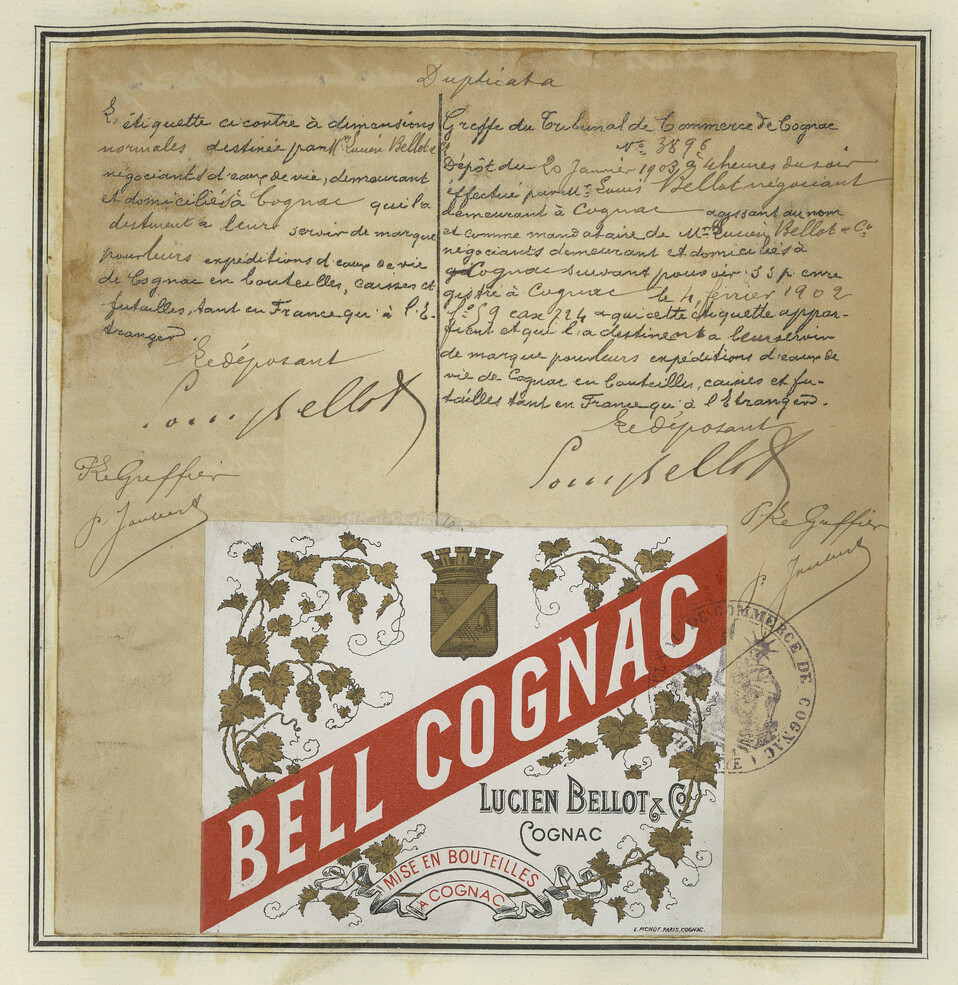 Duplicata
L'étiquette ci contre à dimensions
normales destinée par Mrs Lucien Bellot & Co
négociants d'eaux de vie, demeurant
et domiciliés à Cognac qu'il a
destinent à leurs servir de marque
pour leurs expéditions d'eaux de vie
de Cognac en bouteilles, caisses et
futailles, tant en France qu'à l'E-
tranger
Le déposant
Louis Bellot
Pr Le Greffier
Greffe du Tribunal de Commerce de Cognac
No 3896
Dépôt du 20 Janvier 1903 à 4 heures du soir
effectué par Mr Louis Bellot négociant
demeurant à Cognac agissant au nom
et comme mandataire de Mrs Lucien Bellot & Co
négociants demeurant et domiciliés à
Cognac suivant pouvoir SSP enre
gistré à Cognac le 4 février 1902
fo 59 case 224 a qui cette étiquette appar-
tient et qui l'a destinent a leur servir
de marque pour leurs expéditions d'eaux de
vie de Cognac en bouteilles, caisses et fu-
tailles tant en France qu'à l'Etranger.
Le déposant
Louis Bellot
Pr Le Greffier
BELL COGNAC
LUCIEN BELLOT & Co
COGNAC
MISE EN BOUTEILLES
A COGNAC
E. PICHOT. PARIS. COGNAC.
DE COMMERCE DE COGNAC